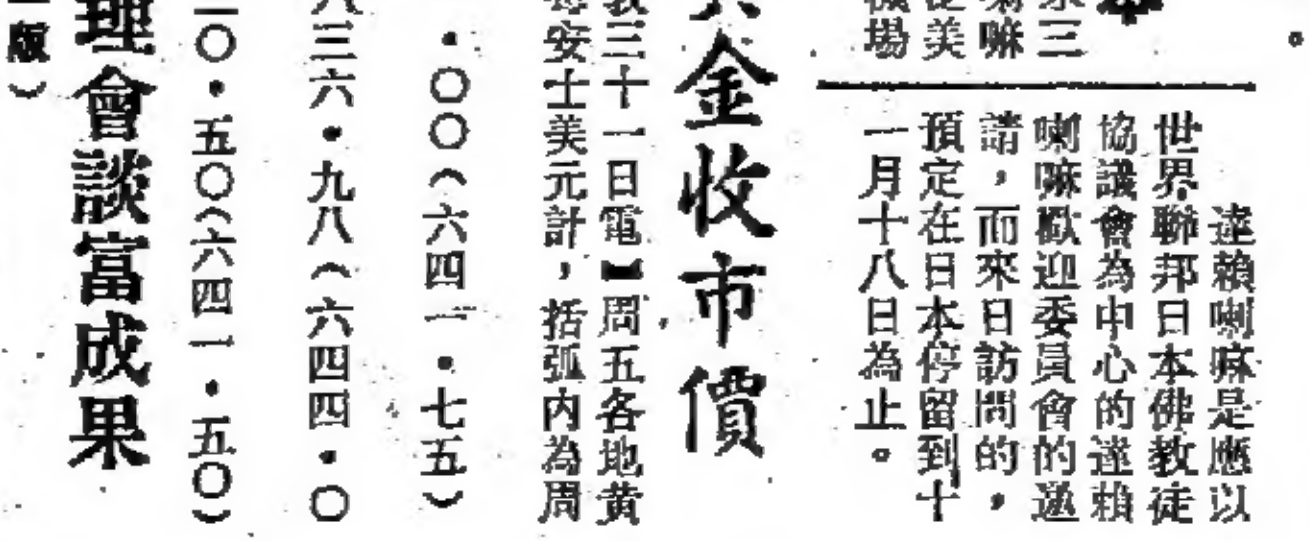 。
京三
喇嘛
從美
機場
達賴喇嘛是應以
世界聯邦日本佛教徒
協議會為中心的達賴
喇嘛歡迎委員會的邀
請，而來日訪問的，
預定在日本停留到十
一月十八日為止。
金收市價
敦三十一日電】周五各地黃
每安士美元計，括弧內為周
．〇〇（六四一．七五）
八三六．九八（六四四．〇
二〇．五〇（六四一．五〇）
理會談富成果
一版）